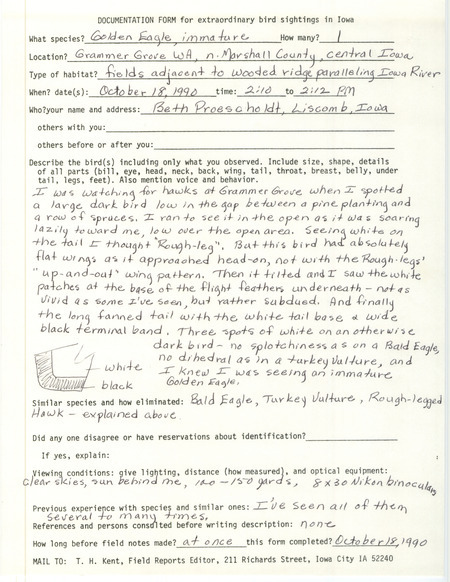 DOCUMENTATION FORM for extraordinary bird sightings in Iowa
What species? Golden Eagle, immature How many? 1
Location? Grammer Grove WA, n. Marshall County, central Iowa
Type of habitat? fields adjacent to wooded ridge paralleling Iowa River
When? date(s): October 18, 1990 time: 2:10 to 2:12 PM
Who?your name and address: Beth Proescholdt, Liscomb, Iowa
others with you:
others before or after you:
Describe the bird(s) including only what you observed. Include size, shape, details
of all parts (bill, eye, head, neck, back, wing, tail, throat, breast, belly, under
tail, legs, feet). Also mention voice and behavior.
I was watching for hawks at Grammer Grove when I spotted
a large dark bird low in the gap between a pine planting and
a row of spruces. I ran to see it in the open as it was soaring
lazily toward me, low over the open area. Seeing white on
the tail I thought "Rough-leg". But this bird had absolutely
flat wings as it approached head-on, not with the Rough-legs'
"up-and-out" wing pattern. Then it tilted and I saw the white
patches at the base of the flight feathers underneath - not as
vivid as some I've seen, but rather subdued. And finally
the long fanned tail with the white tail base & wide
black terminal band. Three spots of white on an otherwise
dark bird - no splotchiness as on a Bald Eagle,
no dihedral as in a turkey Vulture, and
I knew I was seeing an immature
Golden Eagle.
white
black
Similar species and how eliminated: Bald Eagle, Turkey Vulture, Rough-legged
Hawk - explained above
Did any one disagree or have reservations about identification?
If yes, explain:
Viewing conditions: give lighting, distance (how measured), and optical equipment:
clear skies, sun behind me, 120-150 yards, 8x30 Nikon binoculars
Previous experience with species and similar ones: I've seen all of them
several to many times,
References and persons consulted before writing description: none
How long before field notes made? at once this form completed? October 18, 1990
MAIL TO: T. H. Kent, Field Reports Editor, 211 Richards Street, Iowa City IA 52240